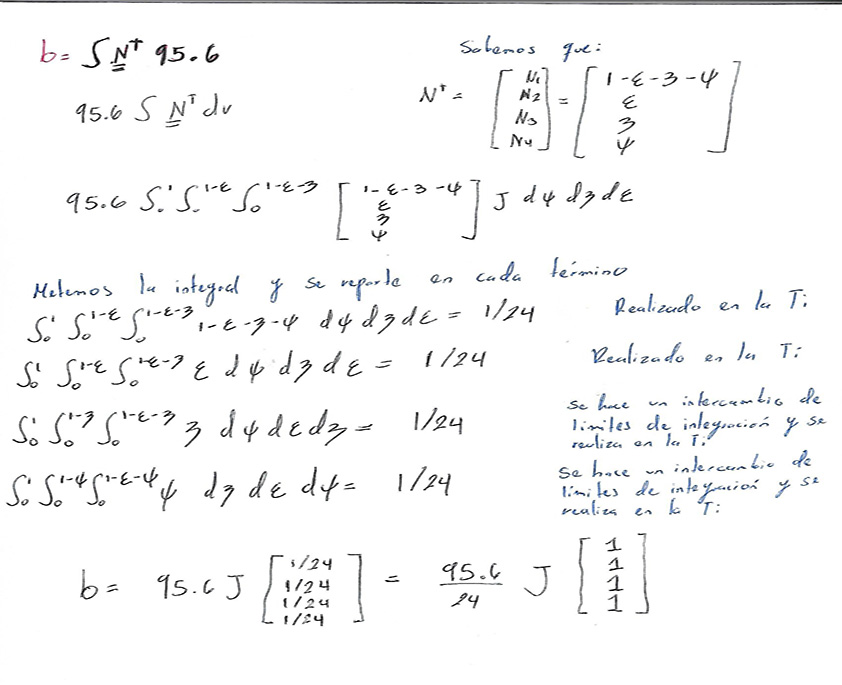 b = ∫ N^T 95.6
Sabemos que:
95.6 ∫ N^T dv
N^T = [N1 N2 N3 N4] = [1-ε-3-ψ ε 3 ψ]
95.6 ∫₀¹ ∫₀^{1-ε} ∫₀^{1-ε-3} [1-ε-3-ψ ε 3 ψ] J dψ d3 dε
Metemos la integral y se reparte en cada término
∫₀¹ ∫₀^{1-ε} ∫₀^{1-ε-3} 1-ε-3-ψ dψ d3 dε = 1/24 Realizado en la Ti
∫₀¹ ∫₀^{1-ε} ∫₀^{1-ε-3} ε dψ d3 dε = 1/24 Realizado en la Ti
∫₀¹ ∫₀^{1-3} ∫₀^{1-ε-3} 3 dψ dε d3 = 1/24
se hace un intercambio de
limites de integración y se
realiza en la Ti
∫₀¹ ∫₀^{1-ψ} ∫₀^{1-ε-ψ} ψ d3 dε dψ = 1/24
se hace un intercambio de
limites de integración y se
realiza en la Ti
b = 95.6 J [1/24 1/24 1/24 1/24] = 95.6/24 J [1 1 1 1]